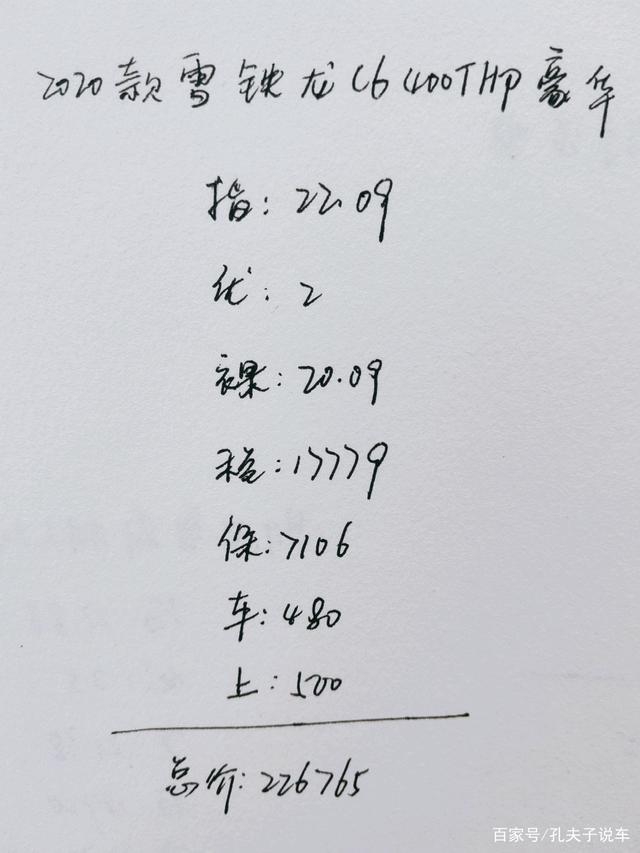 2020款雪铁龙C6 400THP豪华
指:22.09
优:2
裸:20.09
税:17779
保:7106
车:480
上:500
总价:226765
百家号/孔夫子说车